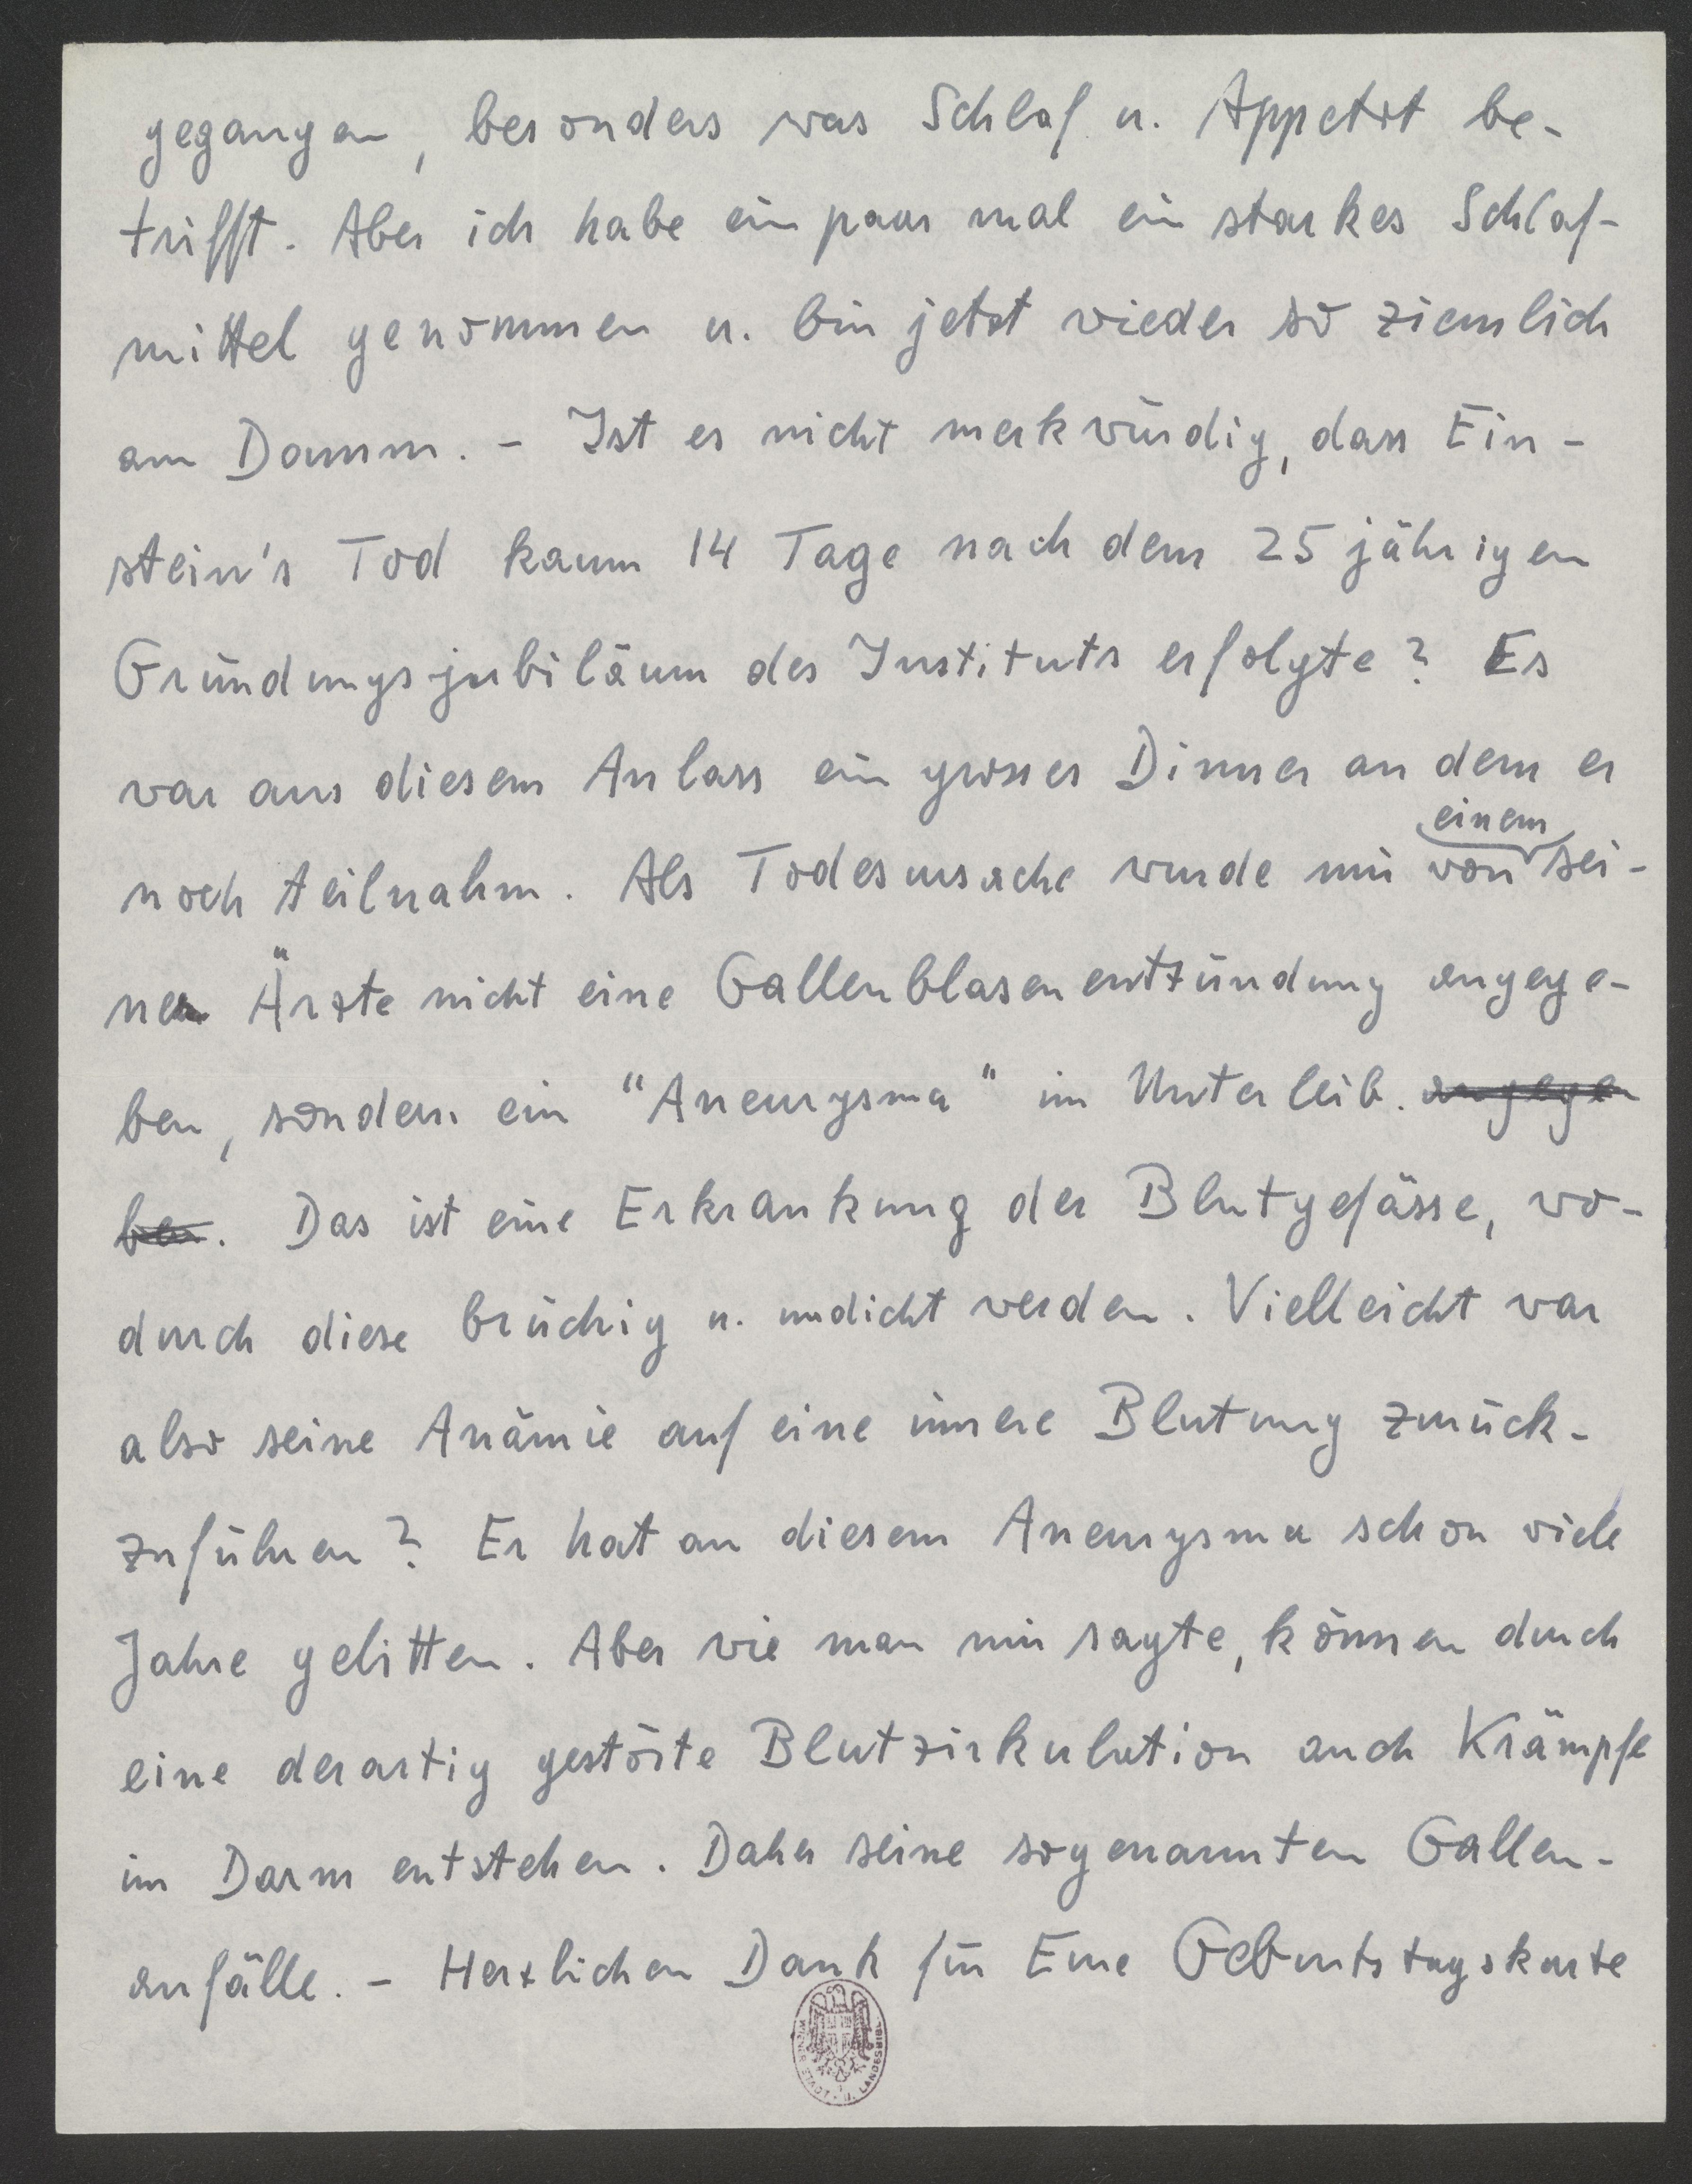 gegangen, besonders was Schlaf u. Appetit be-
trifft. Aber ich habe ein paar mal ein starkes Schlaf-
mittel genommen u. bin jetzt wieder so ziemlich
am Damm. - Ist es nicht merkwürdig, dass Ein-
stein's Tod kaum 14 Tage nach dem 25 jährigen
Gründungsjubiläum des Instituts erfolgte? Es
war aus diesem Anlass ein grosses Dinner an dem er
einem
noch teilnahm. Als Todesursache wurde mir von sei-
ner Ärzte nicht eine Gallenblasenentzündung angege-
ben, sondern ein "Aneurysma" im Unterleib. angege
ben. Das ist eine Erkrankung der Blutgefässe, wo-
durch diese brüchig u. undicht werden. Vielleicht war
also seine Anämie auf eine innere Blutung zurück-
zuführen? Er hat an diesem Aneurysma schon viele
Jahre gelitten. Aber wie man mir sagte, können durch
eine derartig gestörte Blutzirkulation auch Krämpfe
im Darm entstehen. Daher seine sogenannten Gallen-
anfälle. - Herzlichen Dank für Eure Geburtstagskarte
WIENER STADT- U. LANDESBIBL.